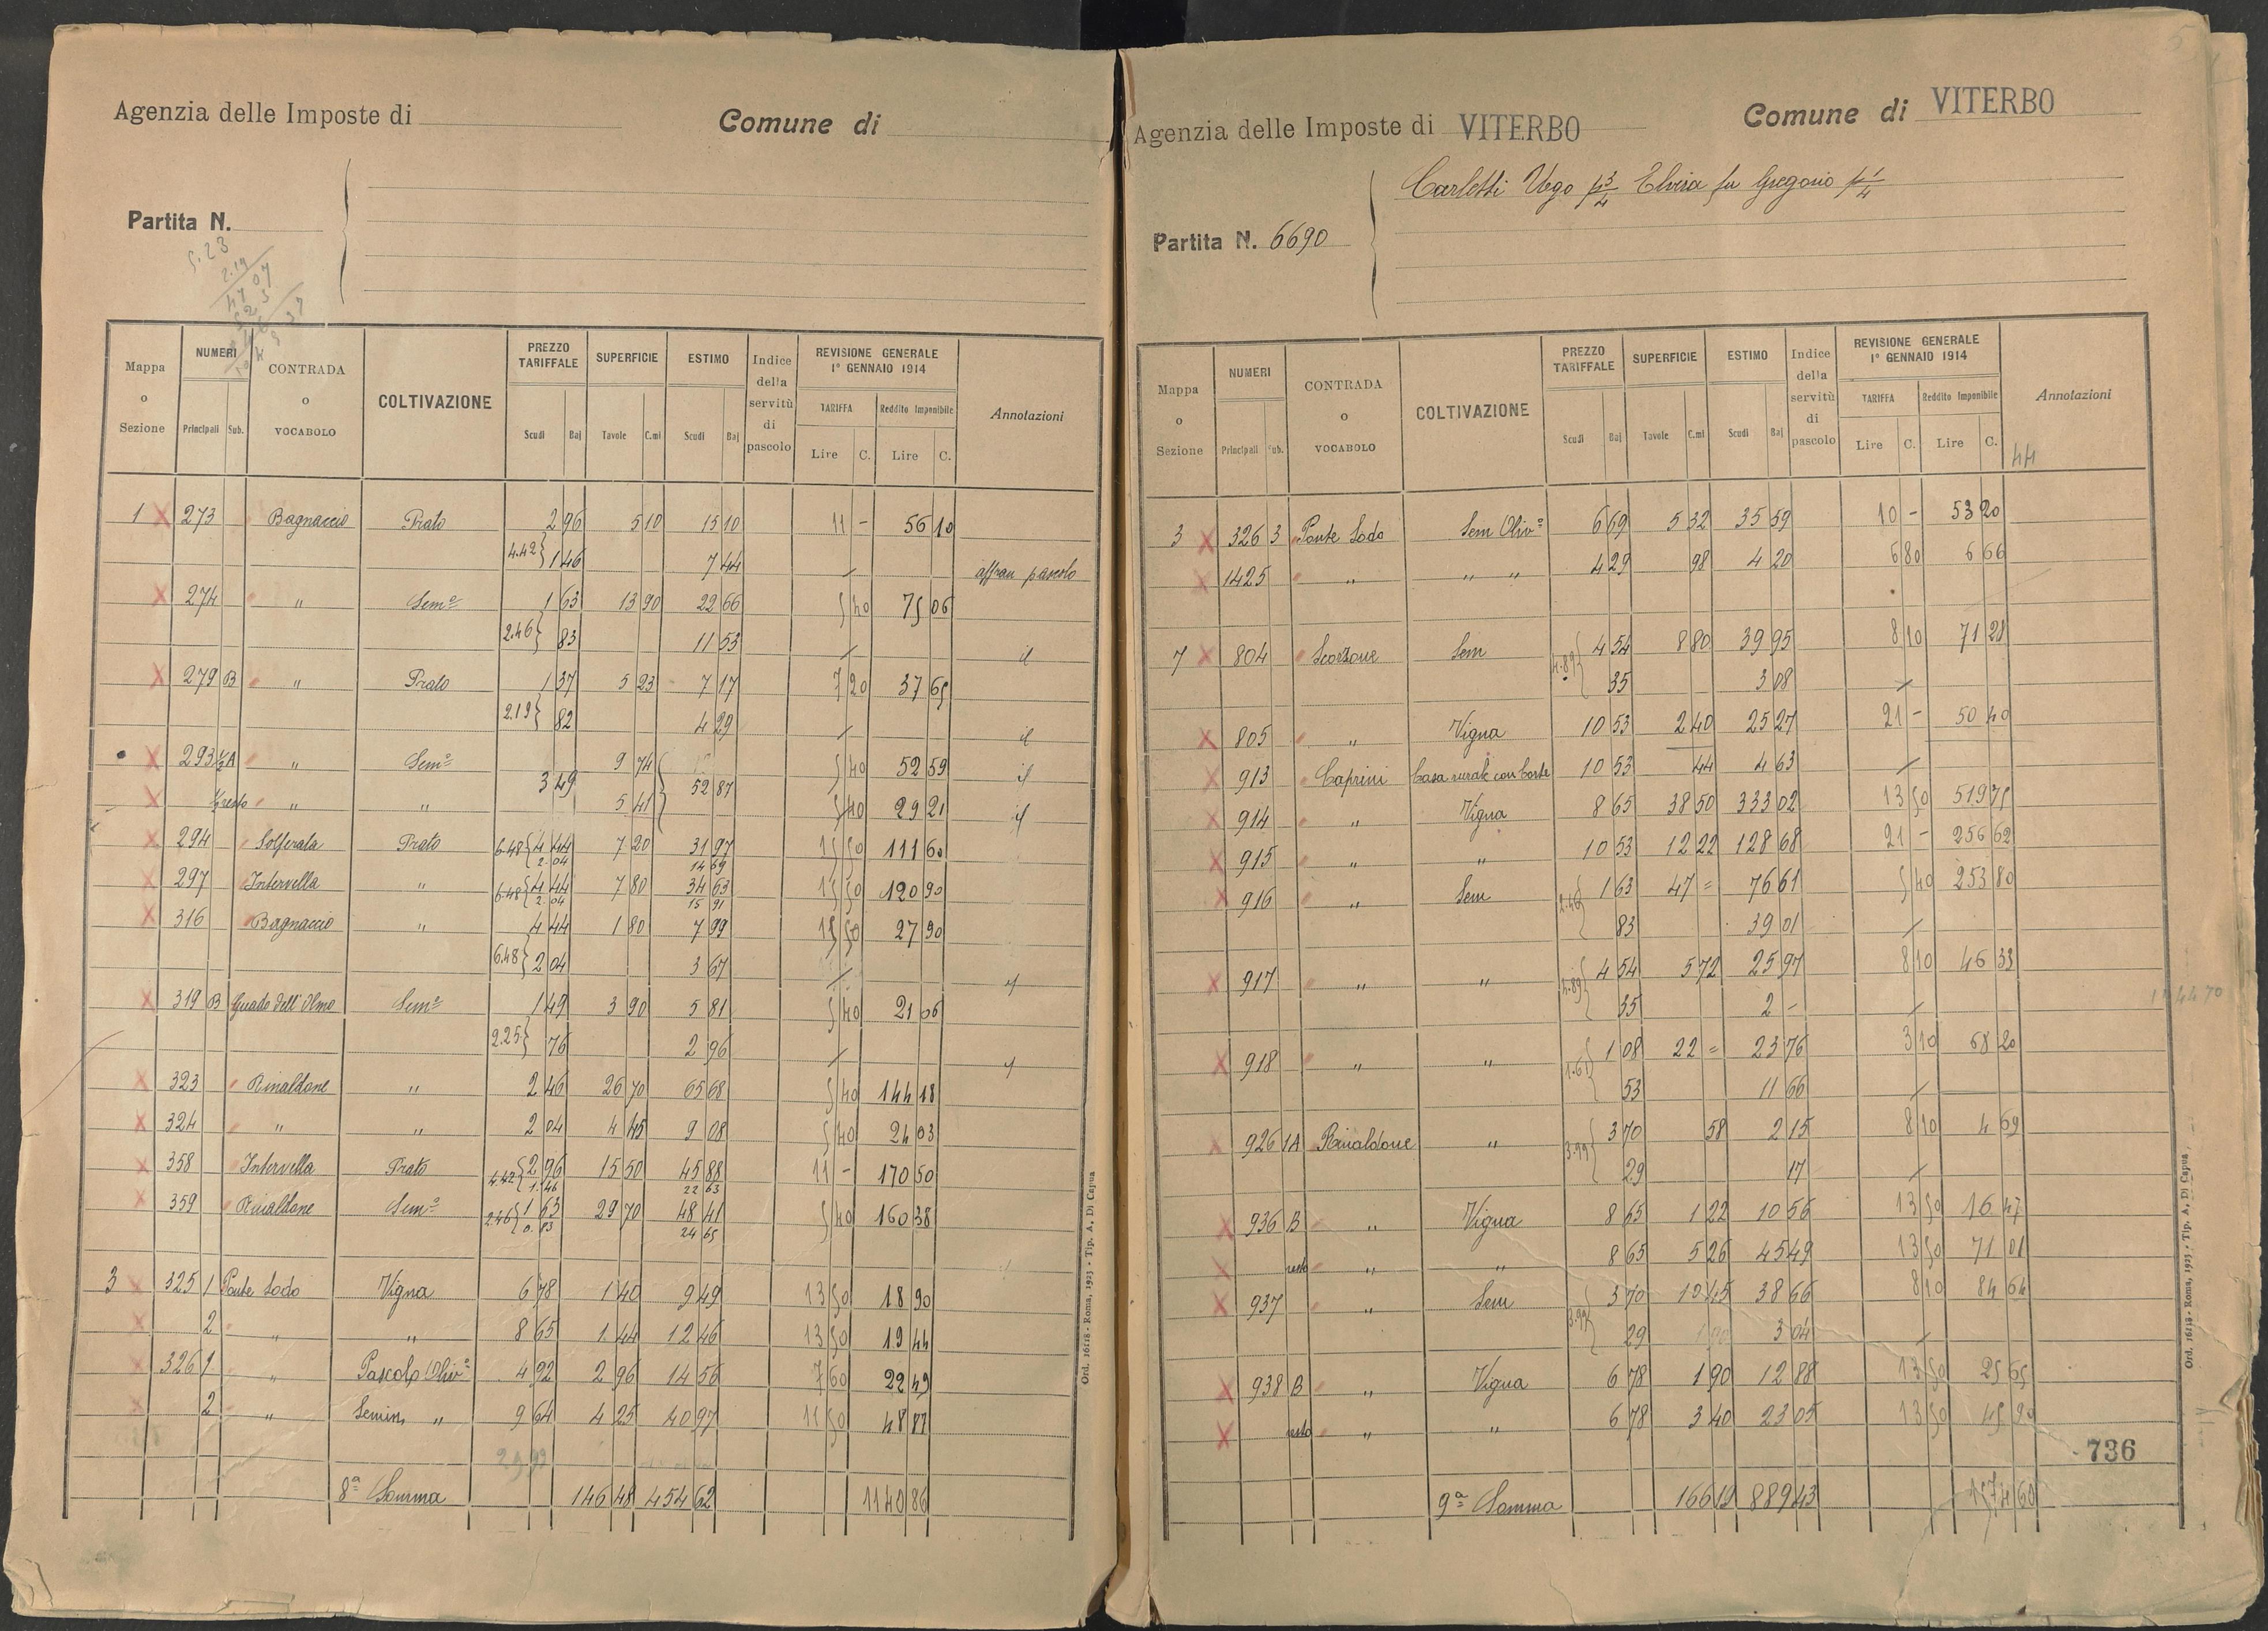 Agenzia delle Imposte di
Comune di
Partita N.
Mappa o Sezione | NUMERI Principali Sub. | CONTRADA o VOCABOLO | COLTIVAZIONE | PREZZO TARIFFALE Scudi Baj | SUPERFICIE Tavole C.mi | ESTIMO Scudi Baj | Indice della servitù di pascolo | REVISIONE GENERALE 1° GENNAIO 1914 TARIFFA Lire C. Reddito Imponibile Lire C. | Annotazioni
1 X 273 Bagnaccio Prato 2 96 5 10 15 10 11 - 56 10
4.42 } 1 46 7 44 affran pascolo
X 274 " Sem.° 1 63 13 90 22 66 5 40 75 06
2.46 } 83 11 53 il
X 279 B " Prato 1 37 5 23 7 17 7 20 37 65
2.19 } 82 4 29 il
X 293 ½A " Sem.° 3 49 9 74 52 87 5 40 52 59 il
X ½ resto " " 5 41 5 40 29 21 il
X 294 Solferata Prato 6.48 { 4 44 7 20 31 97 15 50 111 60
2.04 14 69
X 297 Intervella " 6.48 { 4 44 7 80 34 63 15 50 120 90
2.04 15 91
X 316 Bagnaccio " 4 44 1 80 7 99 15 50 27 90
6.48 } 2 04 3 67 il
X 319 B Guado dell'Olmo Sem.° 1 49 3 90 5 81 5 40 21 06
2.25 } 76 2 96 il
X 323 Rinaldone " 2 46 26 70 65 68 5 40 144 18
X 324 " " 2 04 4 45 9 08 5 40 24 03
X 358 Intervella Prato 4.42 { 2 96 15 50 45 88 11 - 170 50
1.46 22 63
X 359 Rinaldone Sem.° 2.46 { 1 63 29 70 48 41 5 40 160 38
0.83 24 65
3 X 325 1 Ponte Sodo Vigna 6 78 1 40 9 49 13 50 18 90
X 2 " " 8 65 1.44 12 46 13 50 19 44
X 326 1 " Pascolo Oliv.° 4 92 2 96 14 56 7 60 22 49
X 2 " Semin. " 9 64 4 25 40 97 11 50 48 87
8ª Somma 146 48 454 62 1140 86
Ord. 16118 - Roma, 1923 - Tip. A. Di Capua
Agenzia delle Imposte di VITERBO
Comune di VITERBO
Carletti Ugo p 3/4 Elvira fu Gregorio p 1/4
Partita N. 6690
Mappa o Sezione | NUMERI Principali Sub. | CONTRADA o VOCABOLO | COLTIVAZIONE | PREZZO TARIFFALE Scudi Baj | SUPERFICIE Tavole C.mi | ESTIMO Scudi Baj | Indice della servitù di pascolo | REVISIONE GENERALE 1° GENNAIO 1914 TARIFFA Lire C. Reddito Imponibile Lire C. | Annotazioni
44
3 X 326 3 Ponte Sodo Sem Oliv.° 6 69 5 32 35 59 10 - 53 20
X 1425 " " " 4 29 98 4 20 6 80 6 66
7 X 804 Scorzone Sem 4.89 { 4 54 8 80 39 95 8 10 71 28
35 3 08
X 805 " Vigna 10 53 2 40 25 27 21 - 50 40
X 913 Caprini Casa rurale con Corte 10 53 44 4 63
X 914 " Vigna 8 65 38 50 333 02 13 50 519 75
X 915 " " 10 53 12 22 128 68 21 - 256 62
X 916 " Sem 2.46 { 1 63 47 = 76 61 5 40 253 80
83 39 01
X 917 " " 4.89 { 4 54 5 72 25 97 8 10 46 33
35 2 -
X 918 " " 1.61 { 1 08 22 = 23 76 3 10 68 20
53 11 66
X 926 1A Rinaldone " 3.99 { 3 70 58 2 15 8 10 4 69
29 17
X 936 B " Vigna 8 65 1 22 10 56 13 50 16 47
X resto " " 8 65 5 26 45 49 13 50 71 01
X 937 " Sem 3.99 { 3 70 10 45 38 66 8 10 84 64
29 3 04
X 938 B " Vigna 6 78 1 90 12 88 13 50 25 65
X resto " " 6 78 3 40 23 05 13 50 45 90
736
9ª Somma 166 19 889 43 1574 60
Ord. 16118 - Roma, 1923 - Tip. A. Di Capua